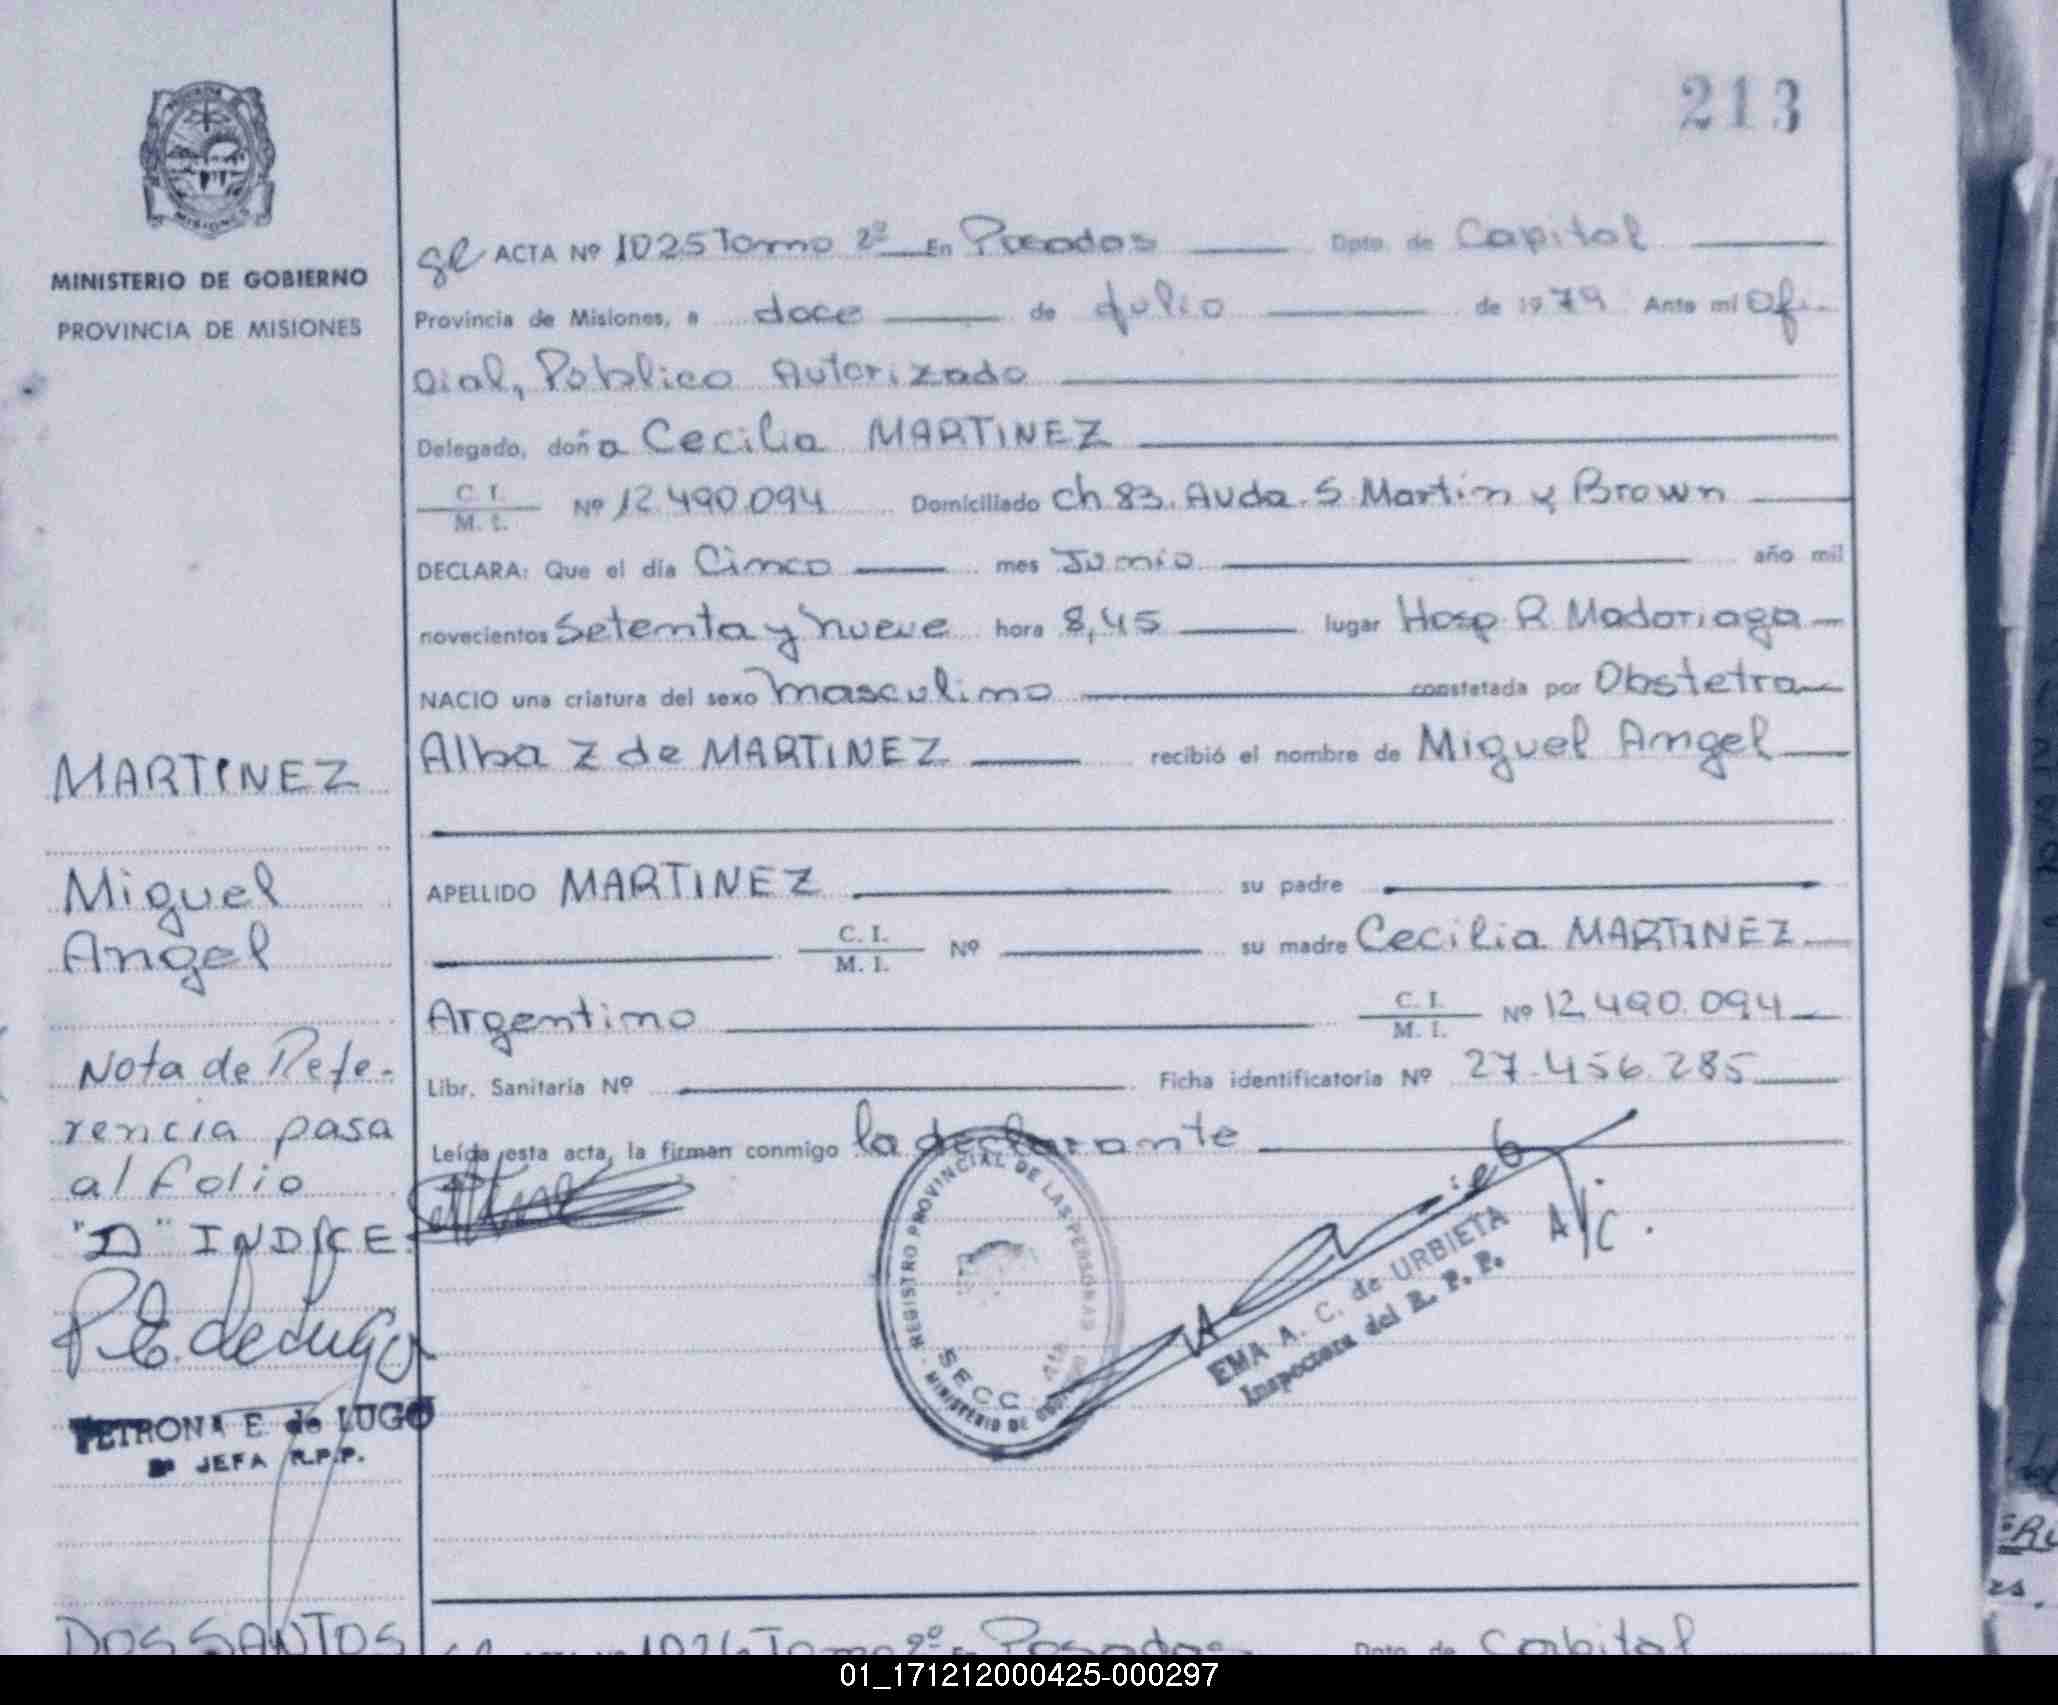 213
MINISTERIO DE GOBIERNO
PROVINCIA DE MISIONES
ACTA Nº 1025 Tomo 2º En Posadas Dpto. de Capital
Provincia de Misiones, a doce de Julio de 1979 Ante mi Ofi-
cial, Público Autorizado
Delegado, doña Cecilia MARTINEZ
C. I. / M. I. Nº 12.490.094 Domiciliado Ch 83. Avda. S. Martin y Brown
DECLARA: Que el día Cinco mes Junio año mil
novecientos Setenta y nueve hora 8,45 lugar Hosp. R. Madariaga
NACIO una criatura del sexo masculino constatada por Obstetra
Alba Z de MARTINEZ recibió el nombre de Miguel Angel
APELLIDO MARTINEZ su padre
C. I. / M. I. Nº su madre Cecilia MARTINEZ
Argentino C. I. / M. I. Nº 12.490.094
Libr. Sanitaria Nº Ficha identificatoria Nº 27.456.285
Leída esta acta, la firman conmigo la declarante
MARTINEZ
Miguel
Angel
Nota de Refe-
rencia pasa
al folio
"D" INDICE.
P.E. de Lugo
PETRONA E. de LUGO
JEFA R.P.P.
REGISTRO PROVINCIAL DE LAS PERSONAS
SECC.
MINISTERIO DE
A/C.
EMA A. C. de URBIETA
Inspectora del R. P. P.
DOS SANTOS
1026 Tomo 2º En Posadas Dpto. de Capital
01_171212000425-000297